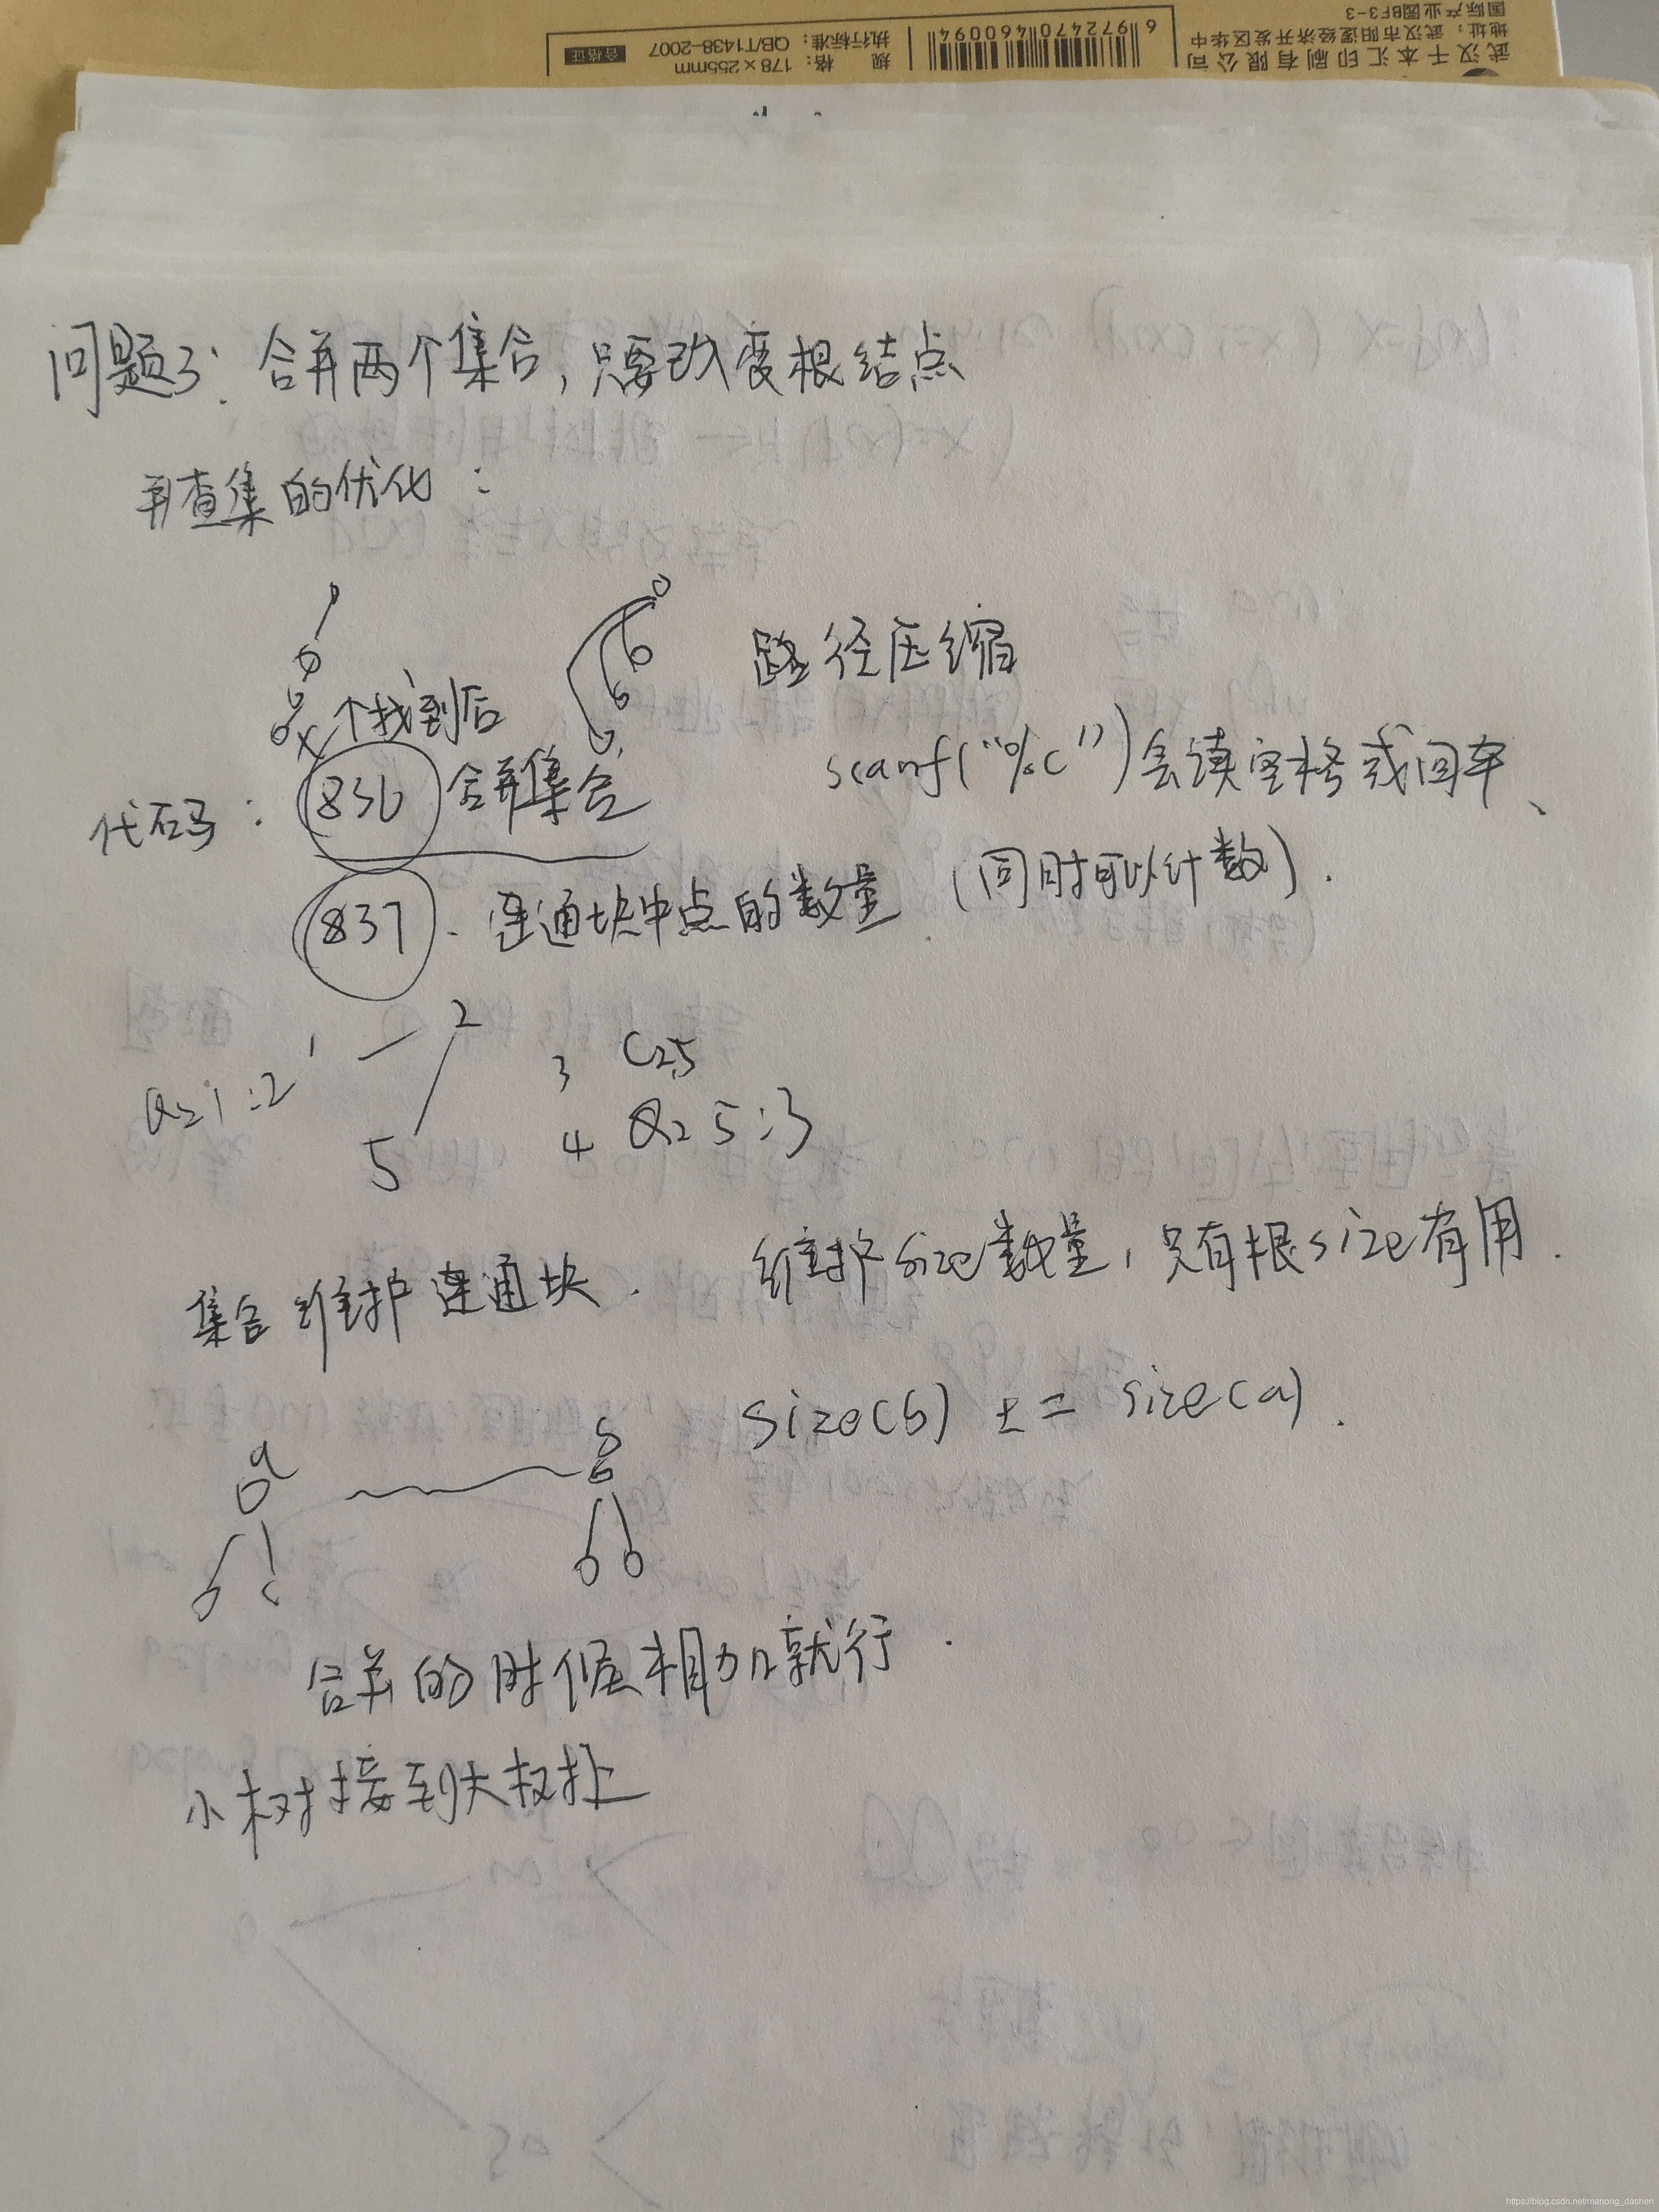 武汉千本汇印刷有限公司
地址：武汉市阳逻经济开发区华中
国际产业园BF3-3
6972470460094
规 格：178×255mm
执行标准：QB/T1438-2007
合格证
问题3：合并两个集合，只要改变根结点
并查集的优化：
路径压缩
个找到后
scanf("%c")会读空格或回车、
代码：836 合并集合
837、连通块中点的数量（同时可以计数）.
1 2
3 C25
Q21:2
5 4 Q25:3
集合维护连通块. 维护size数量，只有根size有用.
size(b) += size(a).
a b
合并的时候相加就行.
小树接到大树上
https://blog.csdn.net/manong_dashen